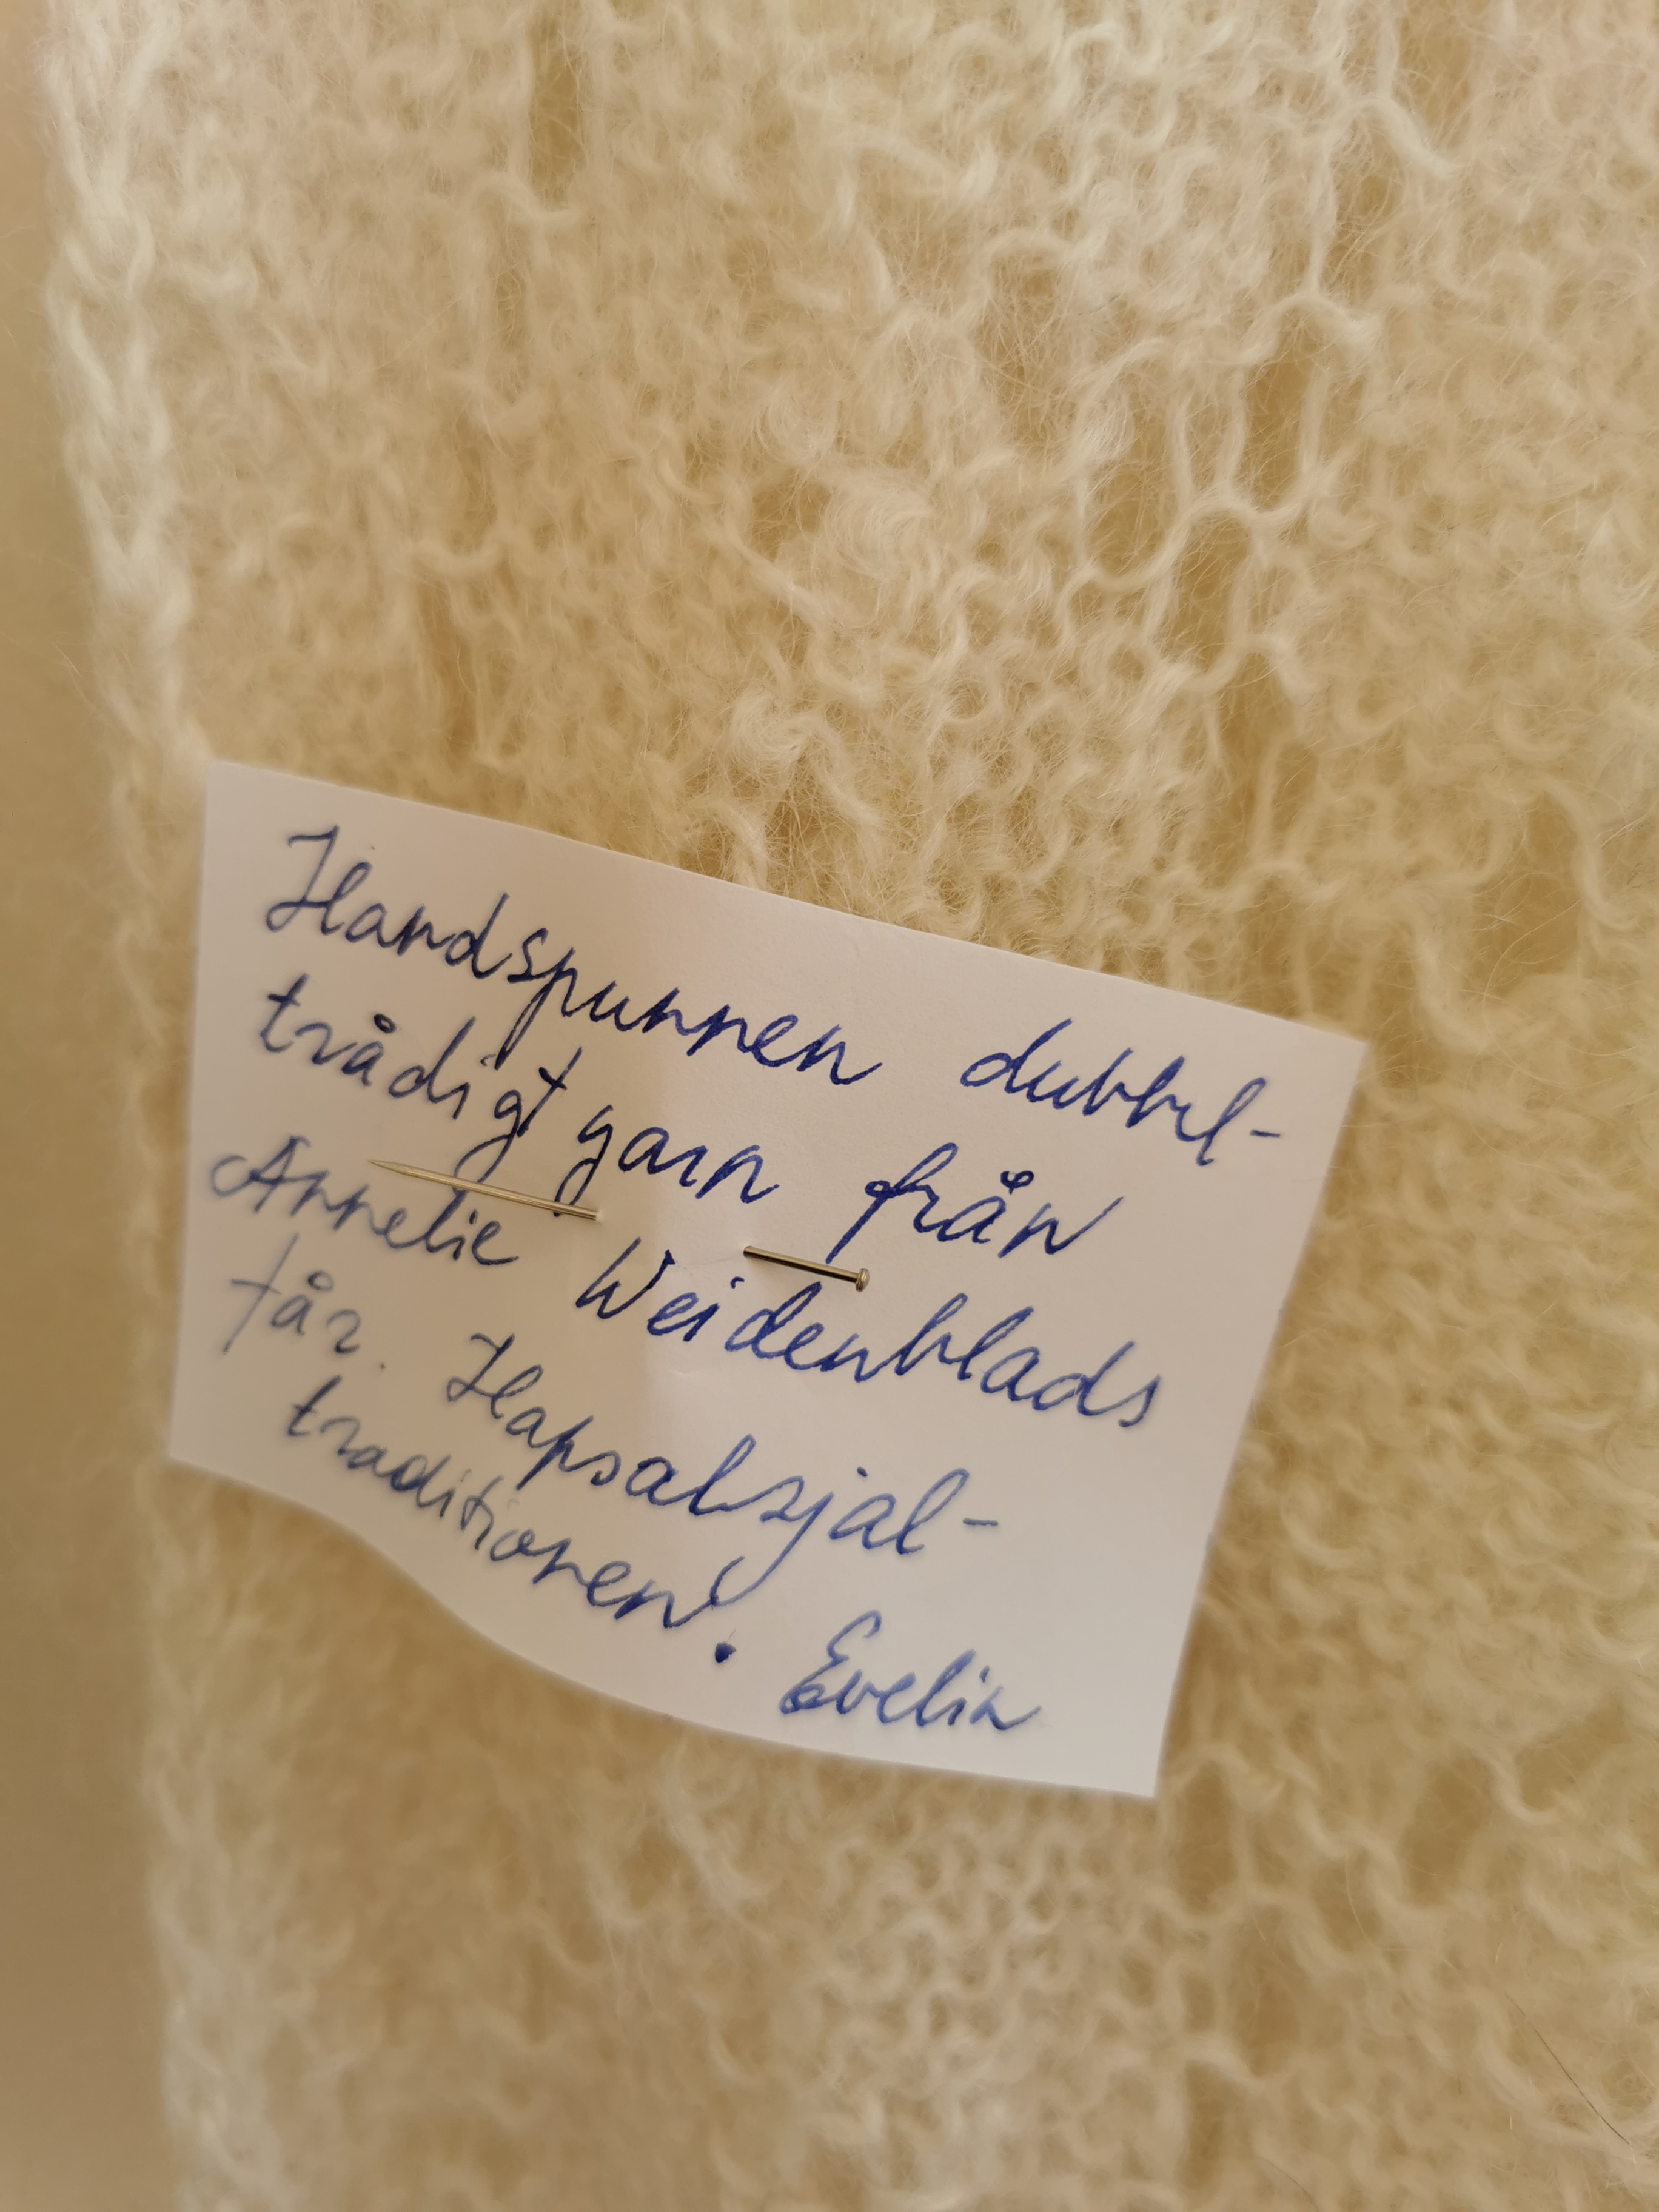 Handspunnen dubbel-
trådigt garn från
Annelie Weidenblads
får. Hapsalsjal-
traditionen. Evelin